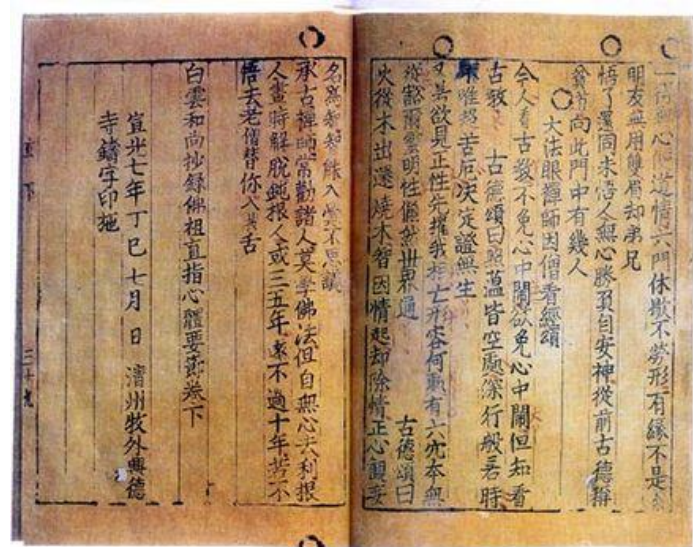 一得無心便道情六門休歇不勞形有緣不是
明友無用雙眉却弟兄
悟了還同未悟人無心勝負自安神從前古德稱
貧道向此門中有幾人
大法眼禪師因僧看經頌
今人看古教不免心中鬧欲免心中鬧但知看
古教 古德頌曰照蘊皆空處深行般若時
唯超苦厄決定證無生
欲見正性先摧我相亡形容何動有六亦本無
從豁爾靈明性儼然世界通 古德頌曰
火從木出還燒木智因情起却除情正心觀妄
名爲知知能入不思議
承古禪師常勸諸人莫學佛法但自無心去利根
人晝時解脫鈍根人或三五年遠不過十年若不
悟去老僧替你入拔舌
白雲和尚抄錄佛祖直指心體要節卷下
宣光七年丁巳七月 日 淸州牧外興德
寺鑄字印施
直下 三十九